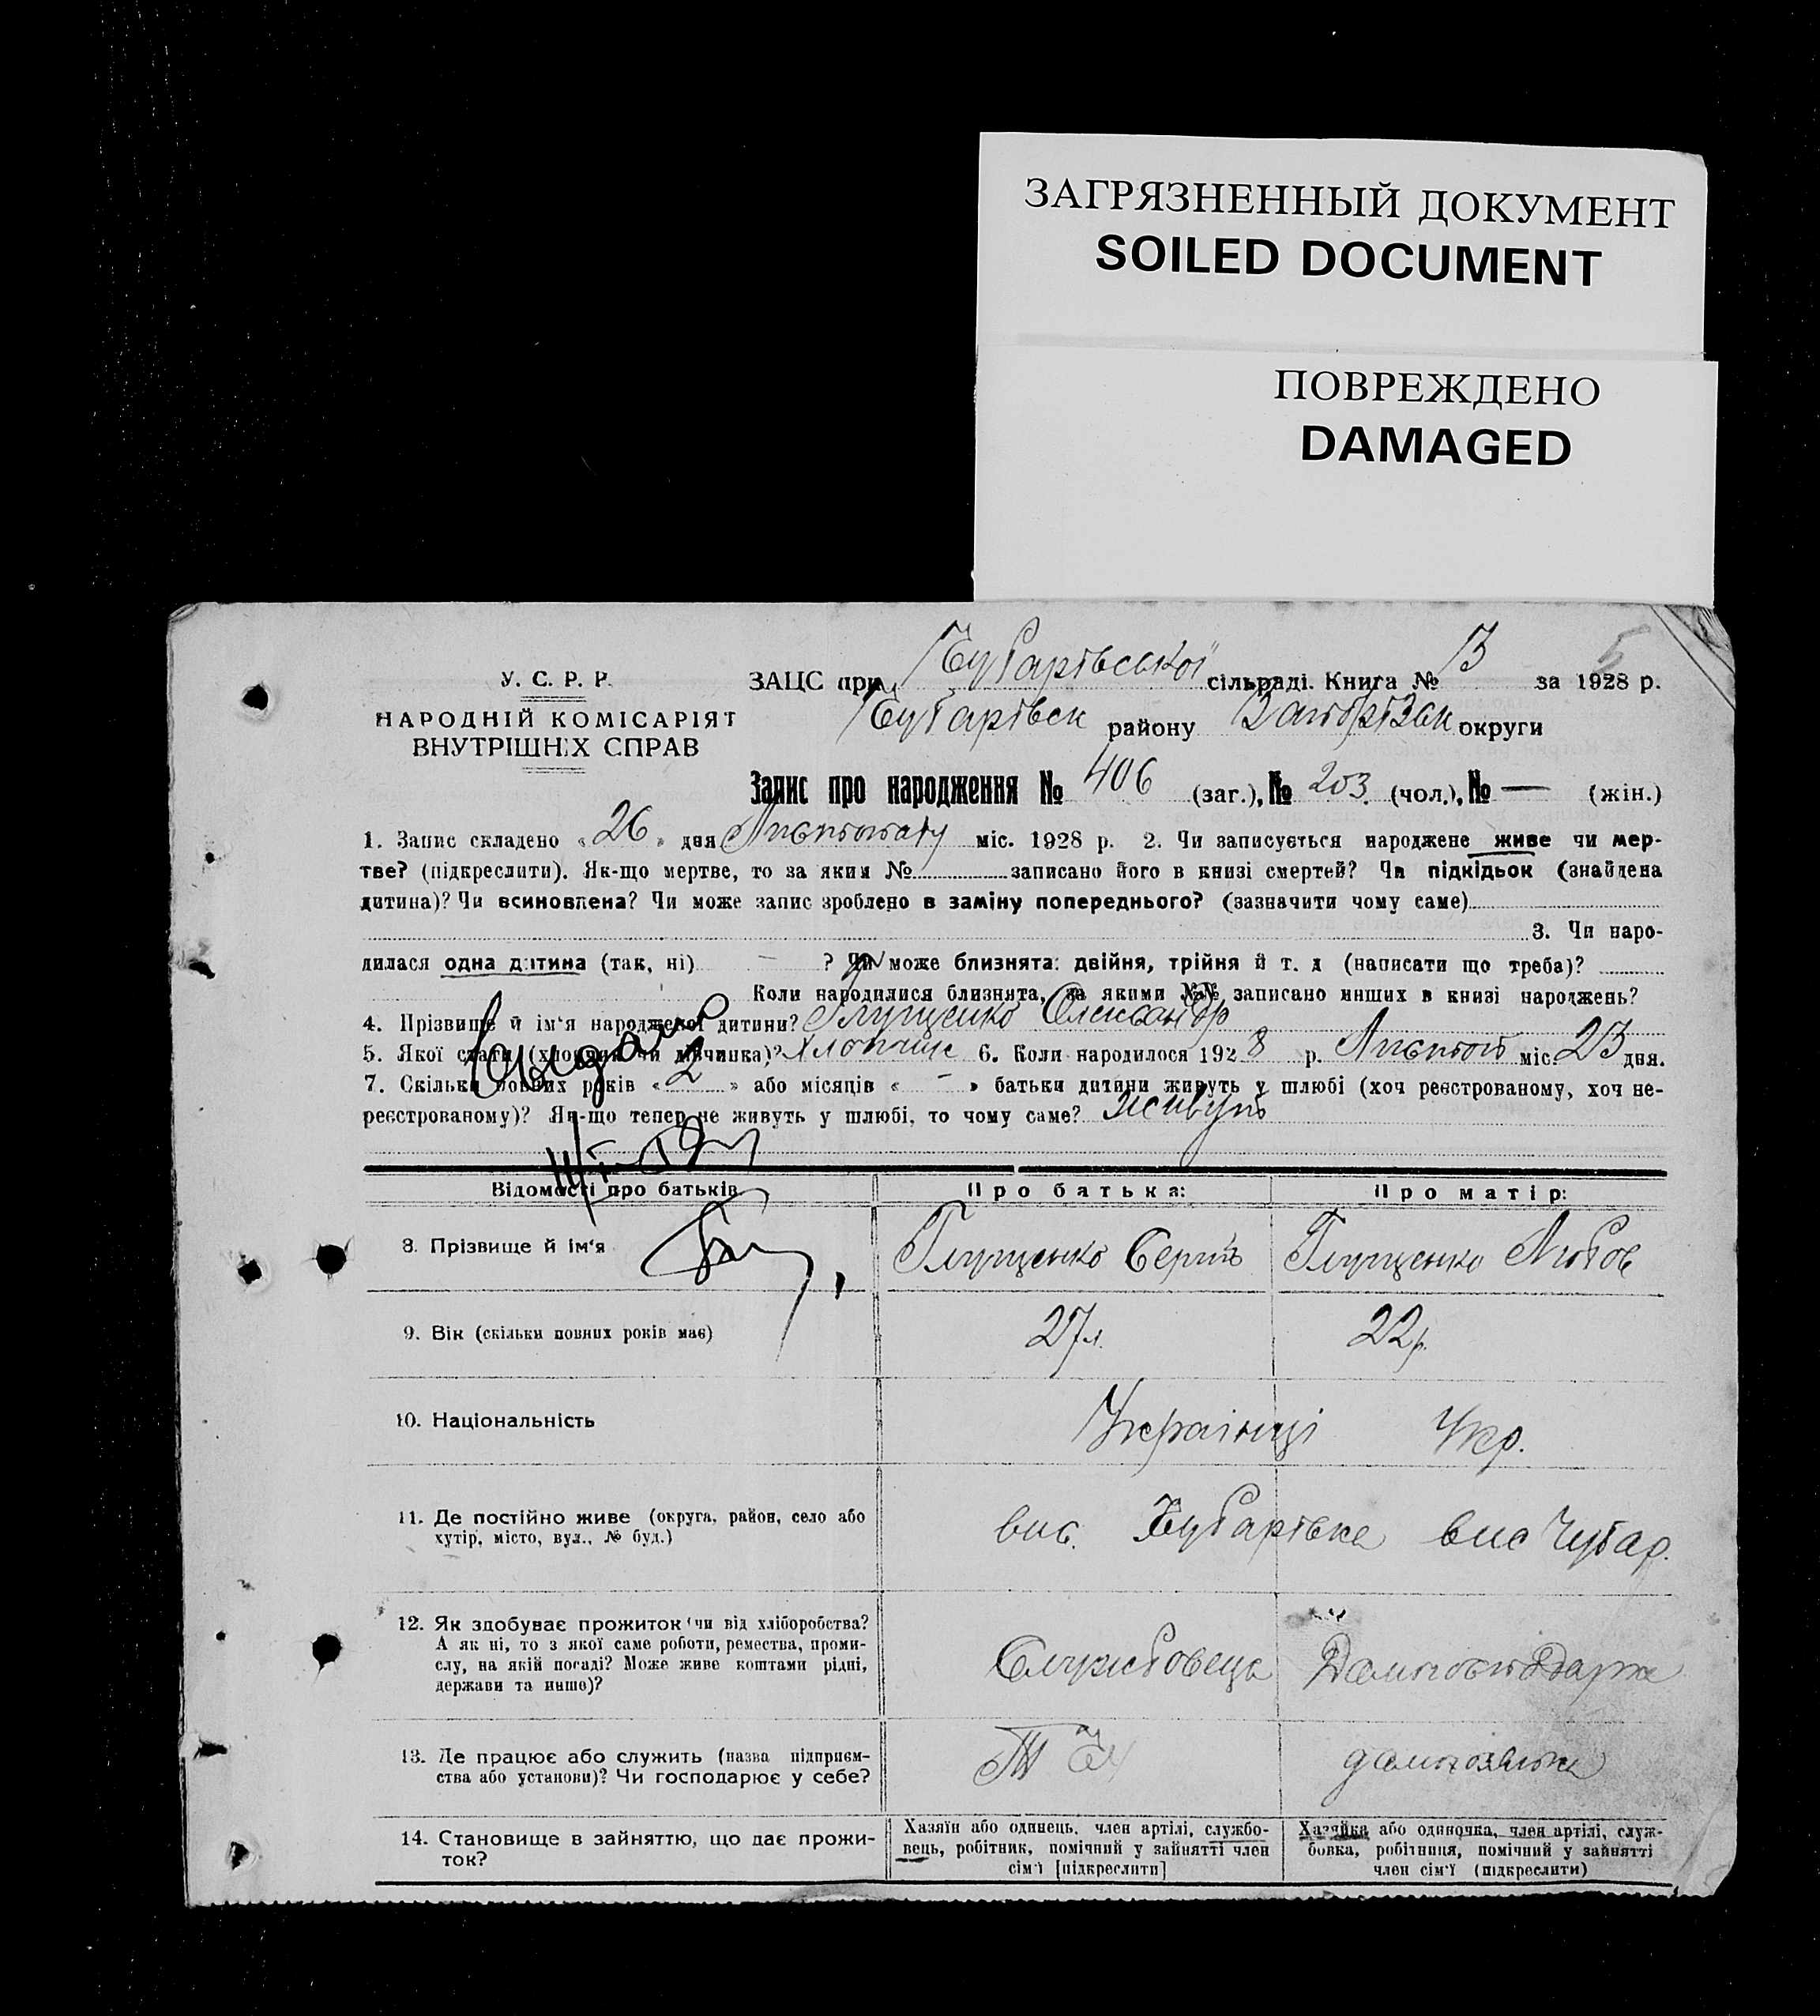 ЗАГРЯЗНЕННЫЙ ДОКУМЕНТ
SOILED DOCUMENT
ПОВРЕЖДЕНО
DAMAGED
У. С. Р. Р.
НАРОДНІЙ КОМІСАРІЯТ
ВНУТРІШНІХ СПРАВ
ЗАЦС при Чубарівської сільраді. Книга № 3 за 1928 р.
5
Чубарівск району Запорізьк округи
Запис про народження № 406 (заг.), № 203 (чол.), № — (жін.)
1. Запис складено « 26 » дня Листопаду міс. 1928 р. 2. Чи записується народжене живе чи мер-
тве? (підкреслити). Як-що мертве, то за яким № записано його в книзі смертей? Чи підкідьок (знайдена
дитина)? Чи всиновлена? Чи може запис зроблено в заміну попереднього? (зазначити чому саме)
3. Чи наро-
дилася одна дитина (так, ні) — ? Чи може близнята: двійня, трійня й т. д (написати що треба)?
Коли народилися близнята, за якими №№ записано инших в книзі народжень?
4. Прізвище й ім'я народженої дитини? Глущенко Олександр
5. Якої стати (хлопчик чи дівчинка)? Хлопчик 6. Коли народилося 192 8 р. Листоп міс. 23 дня.
7. Скільки повних років « 2 » або місяців « - » батьки дитини живуть у шлюбі (хоч реєстрованому, хоч не-
реєстрованому)? Як-що тепер не живуть у шлюбі, то чому саме? живуть
Відомості про батьків
Про батька:
Про матір:
8. Прізвище й ім'я
Глущенко Сергій
Глущенко Любов
9. Вік (скільки повних років має)
27л.
22р.
10. Національність
Українці
Укр.
11. Де постійно живе (округа, район, село або
хутір, місто, вул., № буд.)
вис. Чубарівка
вис Чубар.
12. Як здобуває прожиток (чи від хліборобства?
А як ні, то з якої саме роботи, ремества, проми-
слу, на якій посаді? Може живе коштами рідні,
держави та инше)?
Службовець
13. Де працює або служить (назва підприєм-
ства або установи)? Чи господарює у себе?
14. Становище в зайняттю, що дає прожи-
ток?
Хазяїн або одинець, член артілі, службо-
вець, робітник, помічний у зайнятті член
сім'ї [підкреслити]
Хазяйка або одиночка, член артілі, служ-
бовка, робітниця, помічний у зайнятті
член сім'ї (підкреслити)